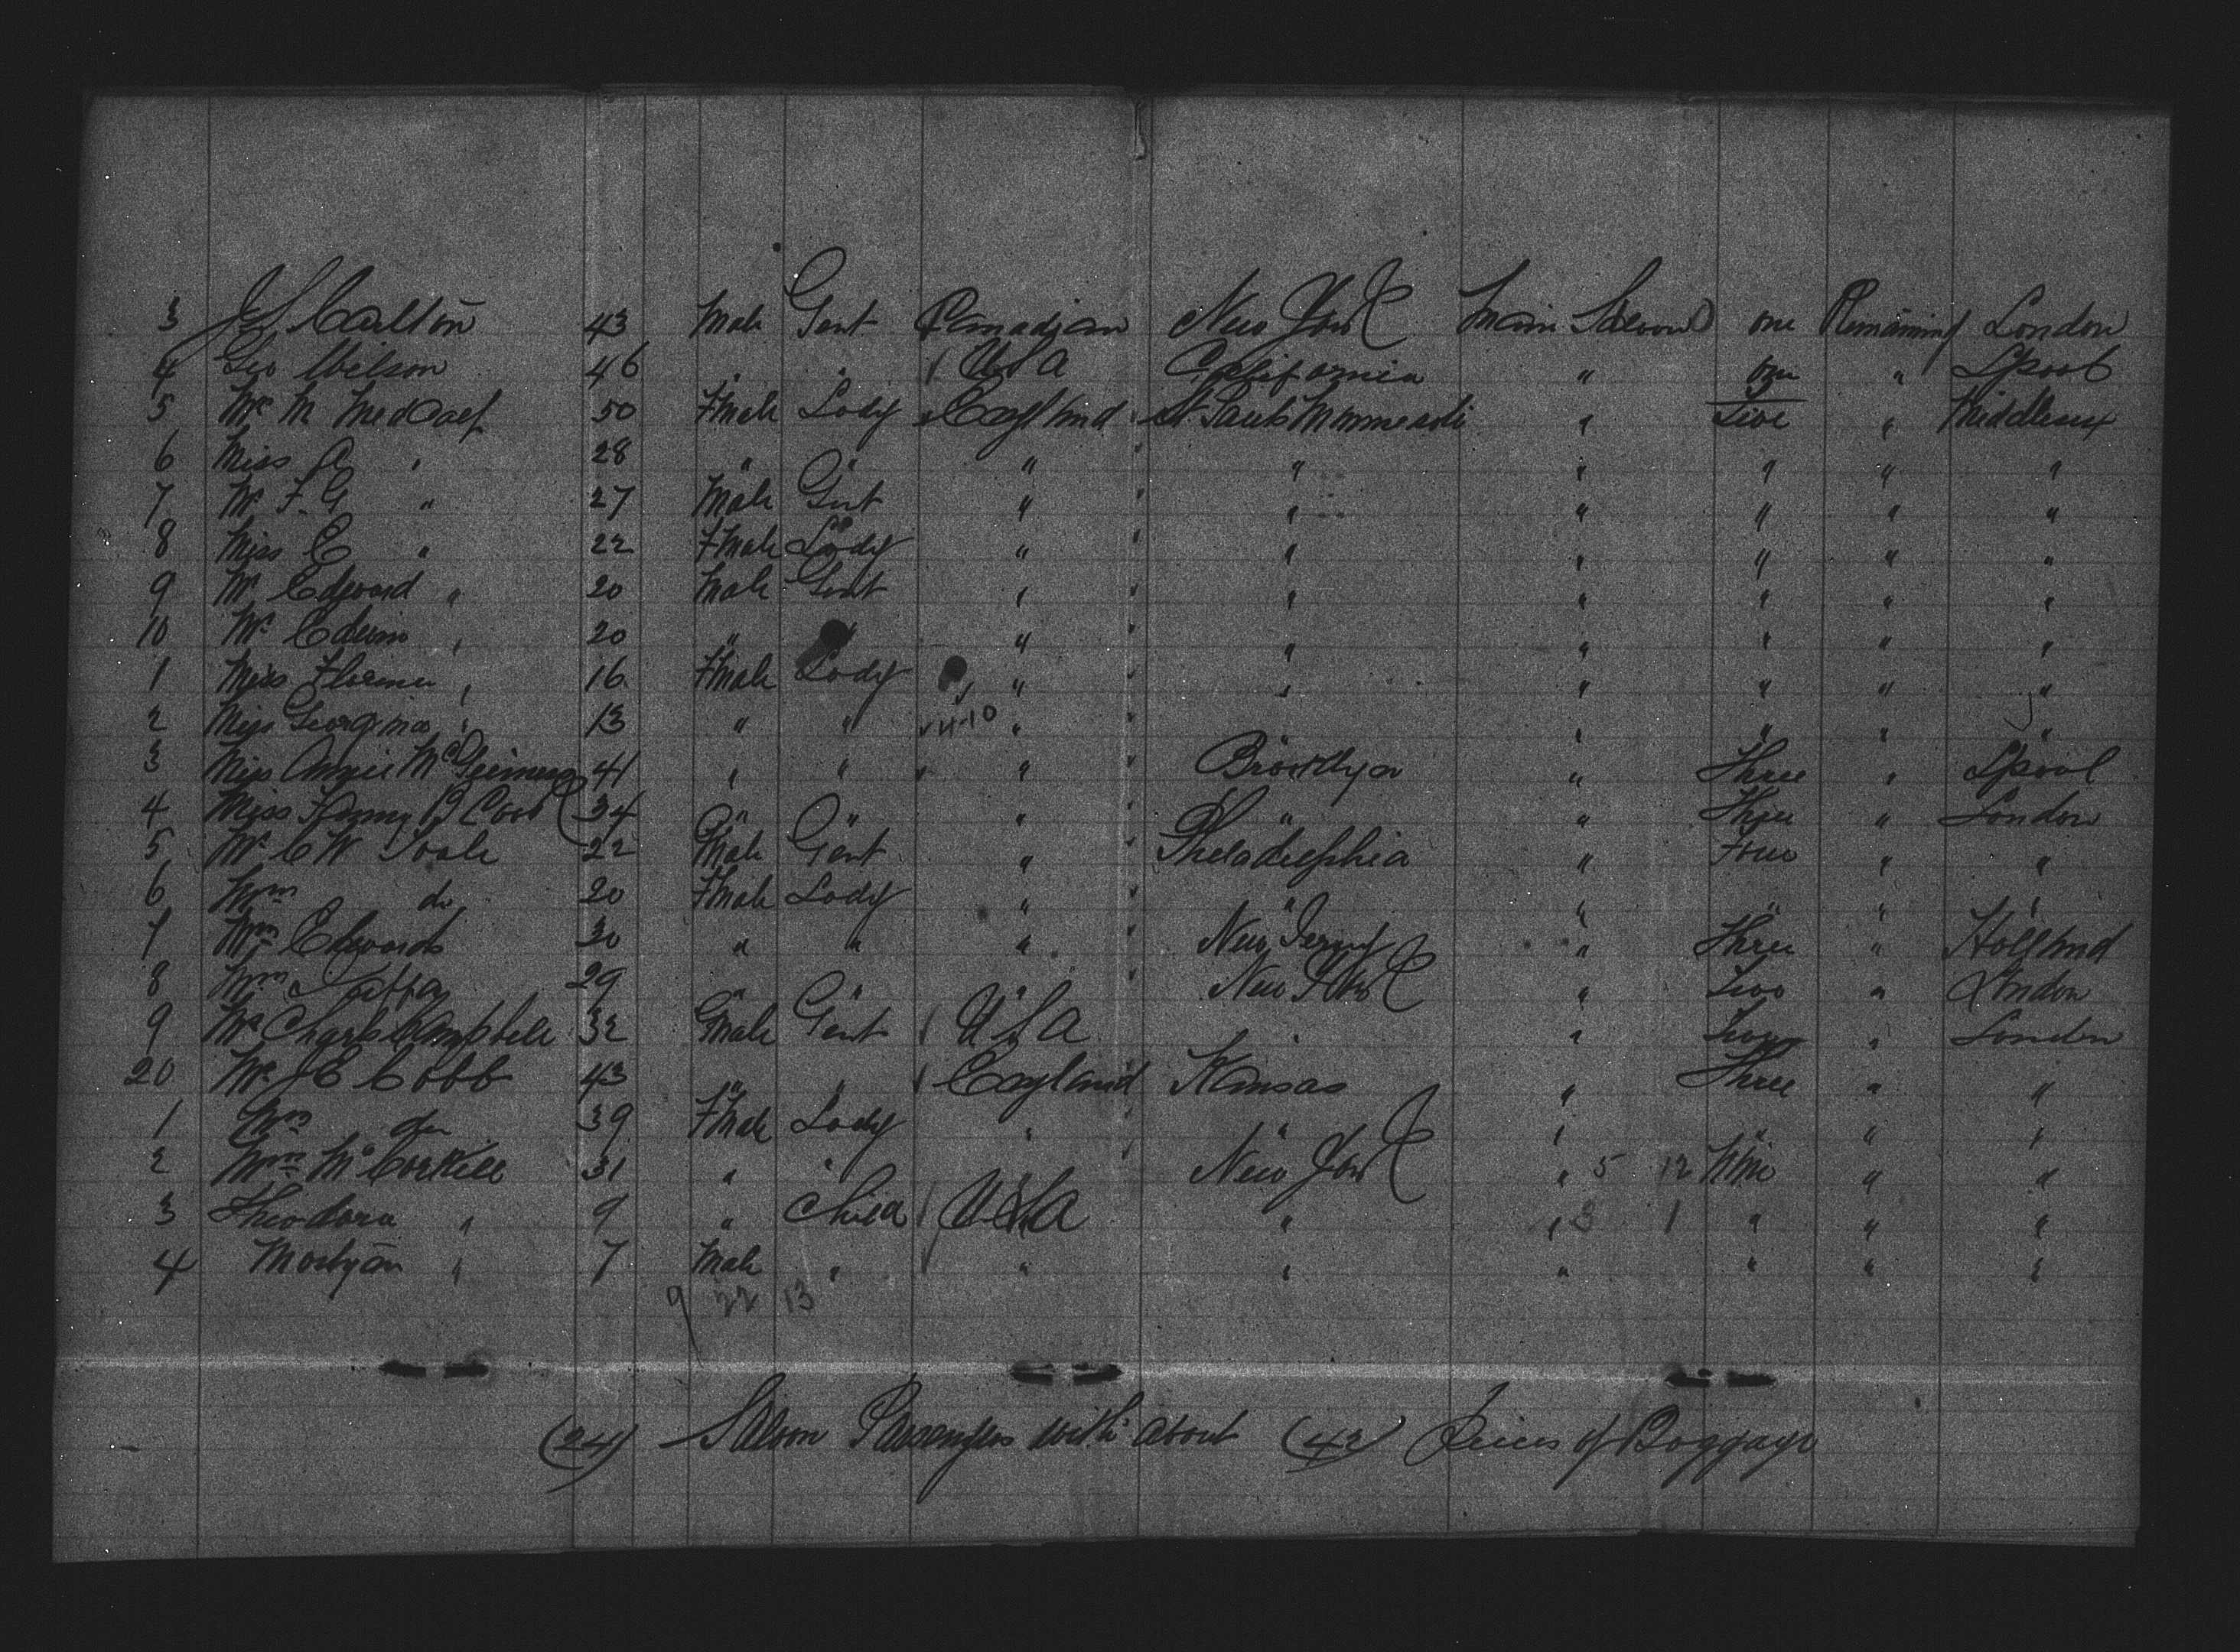 3 J S Carlton 43 Male Gent Canadian New York Main Saloon one Remaining London
4 Geo Wilson 46 " " U S A California " one " Lpool
5 Mrs M Medcalf 50 Fmale Lady England St Pauls Minnesota " Five " Middlesex
6 Miss A " 28 " " " " " " " "
7 Mr F. G " 27 Male Gent " " " " " "
8 Miss E " 22 Fmale Lady " " " " " "
9 Mr Edward " 20 Male Gent " " " " " "
10 Mr Edwin " 20 " " " " " " " "
1 Miss Florence " 16 Fmale Lady " " " " " "
2 Miss Georgina " 13 " " " " " " "
3 Miss Annie 41 " " " Brooklyn " Three " Lpool
4 Miss Fanny B Cook 34 " " " " " Three " London
5 Mr C W 22 Male Gent " Philadelphia " Four " "
6 Mrs do 20 Fmale Lady " " " " " "
7 Mrs Edwards 30 " " " New Jersey " Three " Holland
8 Mrs 29 " " " New York " Two " London
9 Mr Charls Campbell 32 Male Gent U S A " " Two " London
20 Mr J E Cobb 43 " " England Kansas " Three " "
1 Mrs do 39 Fmale Lady " " " " " "
2 Mrs McCorkell 31 " " " New York " 5 12 Nine " "
3 Theodora " 9 " Child U S A " " 3 1 " " "
4 Mostyn " 7 Male " " " " " " "
9 22 13
(24) Saloon Passengers with about (42) Pieces of Baggage